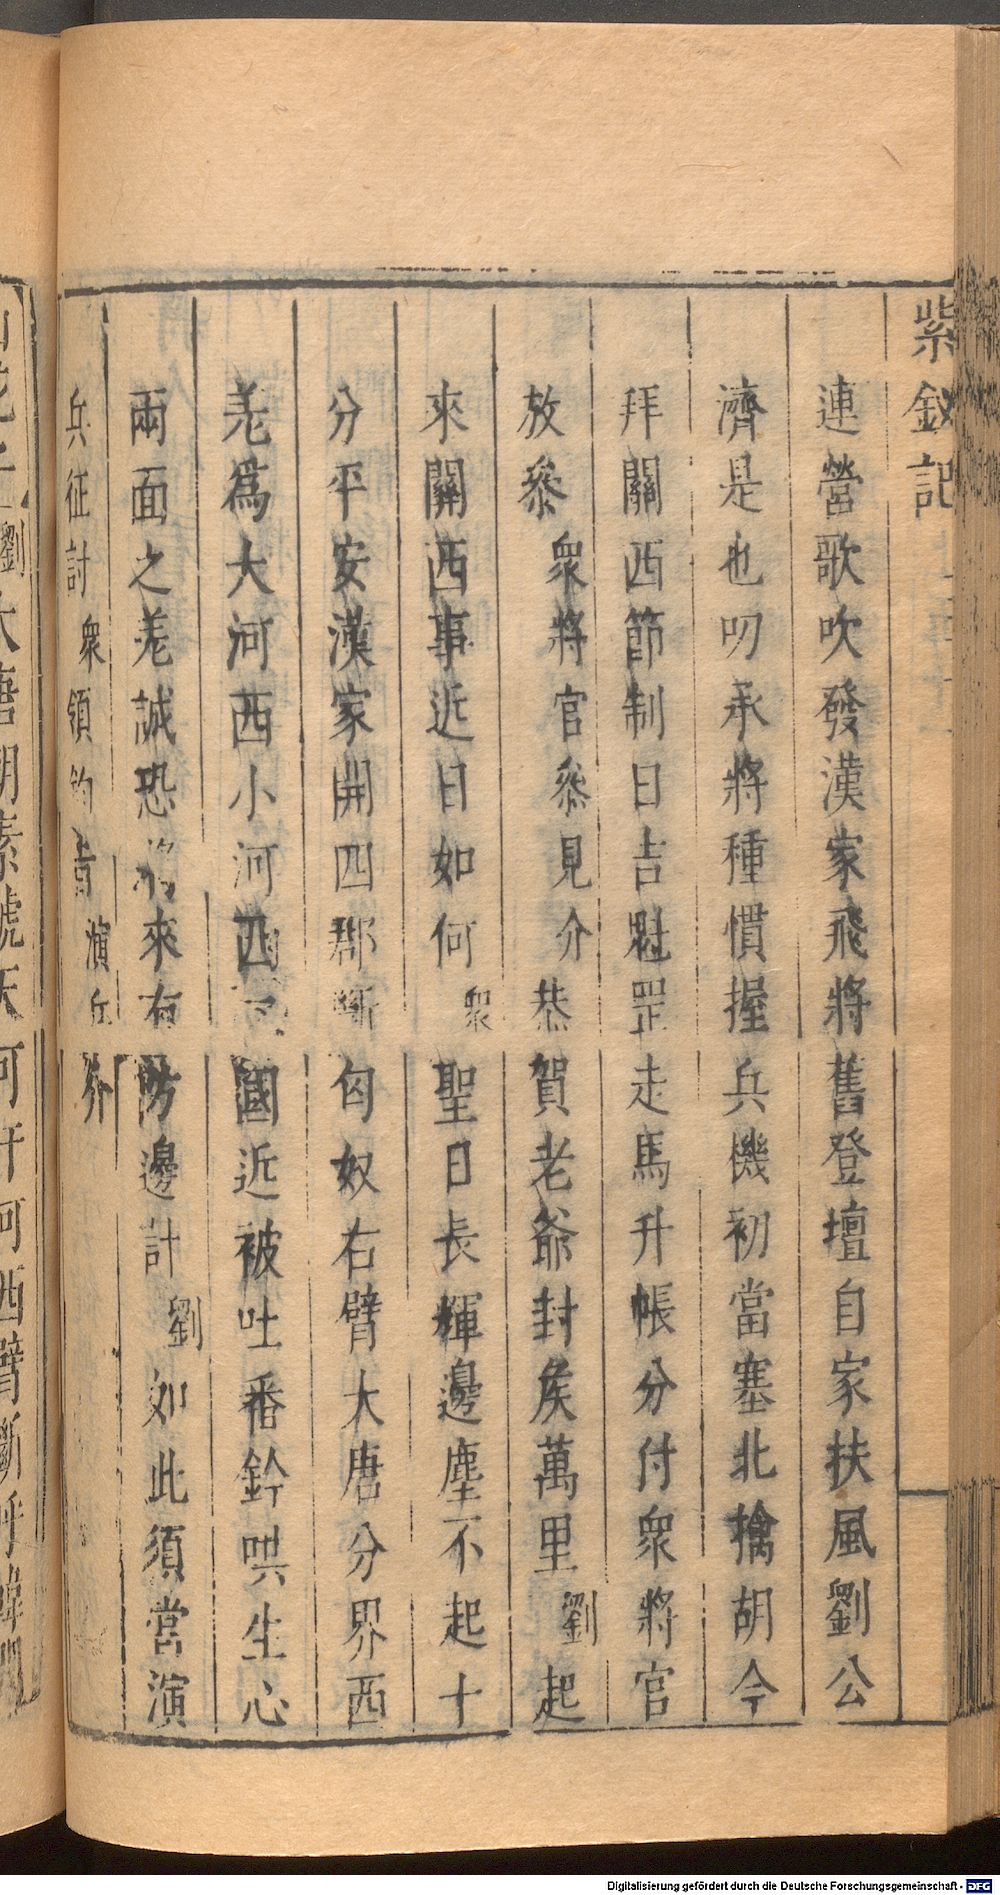 紫釵記
連營歌吹發漢家飛將舊登壇自家扶風劉公
濟是也叨承將種慣握兵機初當塞北擒胡今
拜關西節制日吉魁罡走馬升帳分付眾將官
放叅 衆將官叅見介 恭賀老爺封矦萬里 劉 起
來關西事近日如何 衆 聖日長輝邊塵不起十
分平安漢家開四郡斷匈奴右臂大唐分界西
羗爲大河西小河西 國近被吐番鈐哄生心
兩面之羗誠恐 來有 防邊計 劉 如此須當演
兵征討 衆 領鈞旨 演兵介
劉 大唐朝 號天可汗河西臂斷呼韓
Digitalisierung gefördert durch die Deutsche Forschungsgemeinschaft - DFG